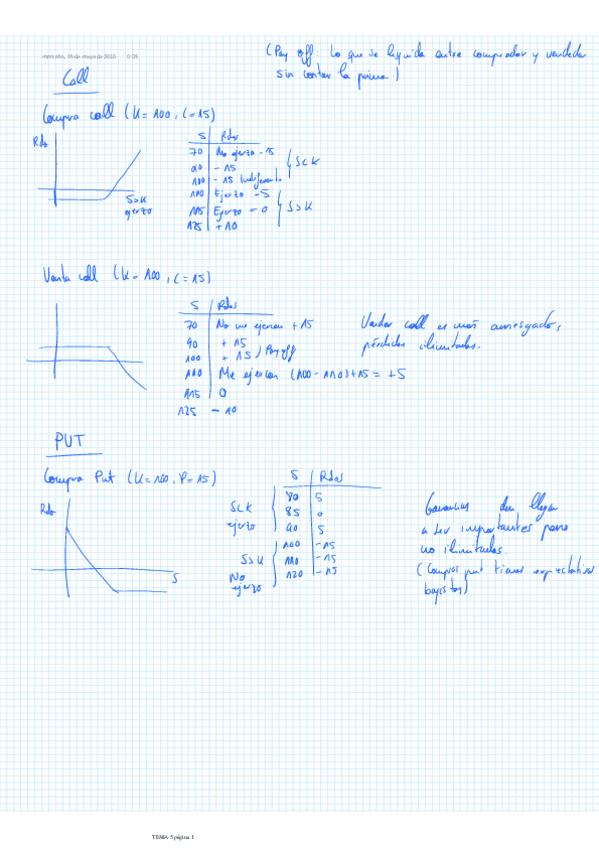 miércoles, 25 de mayo de 2016
(Pay off: Lo que se liquida entre comprador y vendedor
sin contar la prima.)
Call
Compra call (K=100, C=15)
Rdo
S | Rdos
70 | No ejerzo -15
90 | -15
100 | -15 Indiferente
S<K
110 | Ejerzo -5
115 | Ejerzo = 0
125 | +10
S>K
S>K
ejerzo
Venta call (K=100, C=15)
S | Rdos
70 | No me ejercen +15
90 | +15
100 | +15) Pay off
110 | Me ejercen (100-110)+15 = +5
115 | 0
125 -10
Vender call es más arriesgado,
pérdidas ilimitadas.
PUT
Compra Put (K=100, P=15)
Rdo
S
S | Rdos
80 | 5
85 | 0
90 | 5
S<K
ejerzo
100 | -15
110 | -15
120 | -15
S>K
No
ejerzo
Ganancias llegar
a ser importantes pero
no ilimitadas.
(Compras put tienes expectativas
bajistas)
TEMA 5 página 1